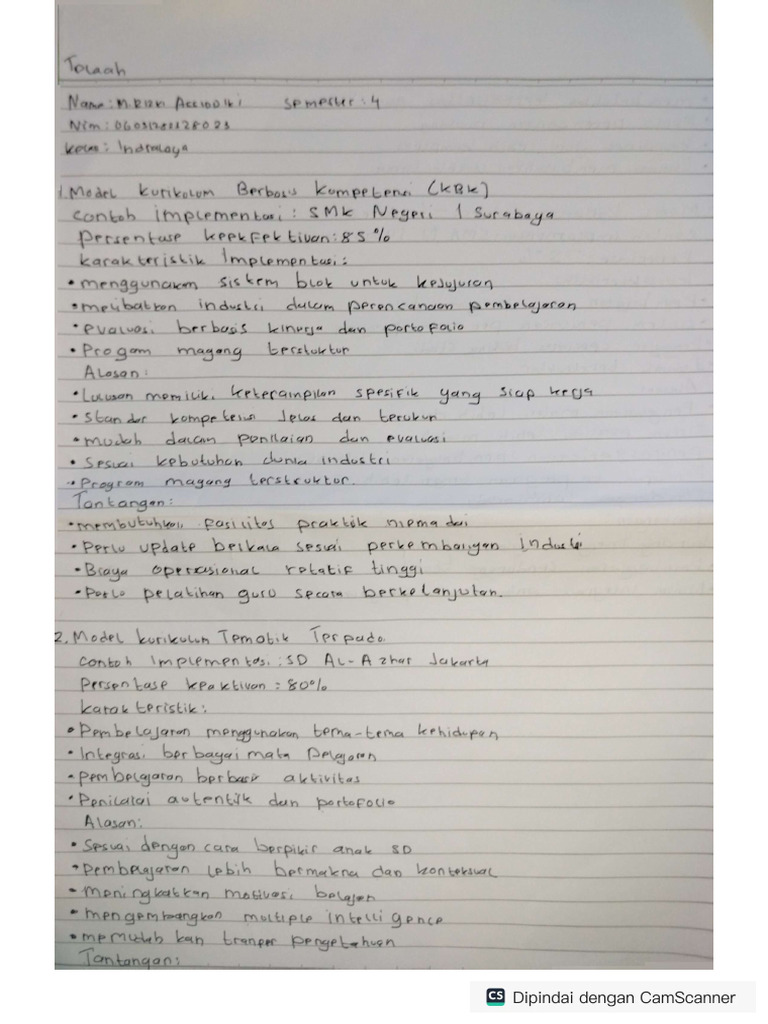 Telaah
Nama : M. Rizki Semester : 4
Nim :
Kelas : Indralaya
1. Model kurikulum Berbasis Kompetensi (KBK)
Contoh implementasi : SMK Negeri 1 Surabaya
Persentase keefektivan : 85%
karakteristik Implementasi :
• menggunakan sistem blok untuk kejujuran
• melibatkan industri dalam perencanaan pembelajaran
• evaluasi berbasis kinerja dan portofolio
• Progam magang terstuktur
Alasan :
• Lulusan memiliki keterampilan spesifik yang siap kerja
• Standar kompetensi Jelas dan terukur
• mudah dalam penilaian dan evaluasi
• Sesuai kebutuhan dunia industri
• Program magang terstruktur.
Tantangan :
• membutuhkan fasilitas praktik memadai
• Perlu update berkala sesuai perkembangan industri
• Biaya operasional relatif tinggi
• Perlu pelatihan guru secara berkelanjutan.
2. Model kurikulum Tematik Terpadu
Contoh Implementasi : SD AL-Azhar Jakarta
Persentase keaktivan : 80%
karakteristik :
• Pembelajaran menggunakan tema-tema kehidupan
• Integrasi berbagai mata Pelajaran
• pembelajaran berbasis aktivitas
• Penilaian autentik dan portofolio
Alasan :
• Sesuai dengan cara berpikir anak SD
• Pembelajaran lebih bermakna dan kontekstual
• meningkatkan motivasi belajar
• mengembangkan multiple intelligence
• memudahkan tranper pengetahuan
Tantangan :
CS Dipindai dengan CamScanner